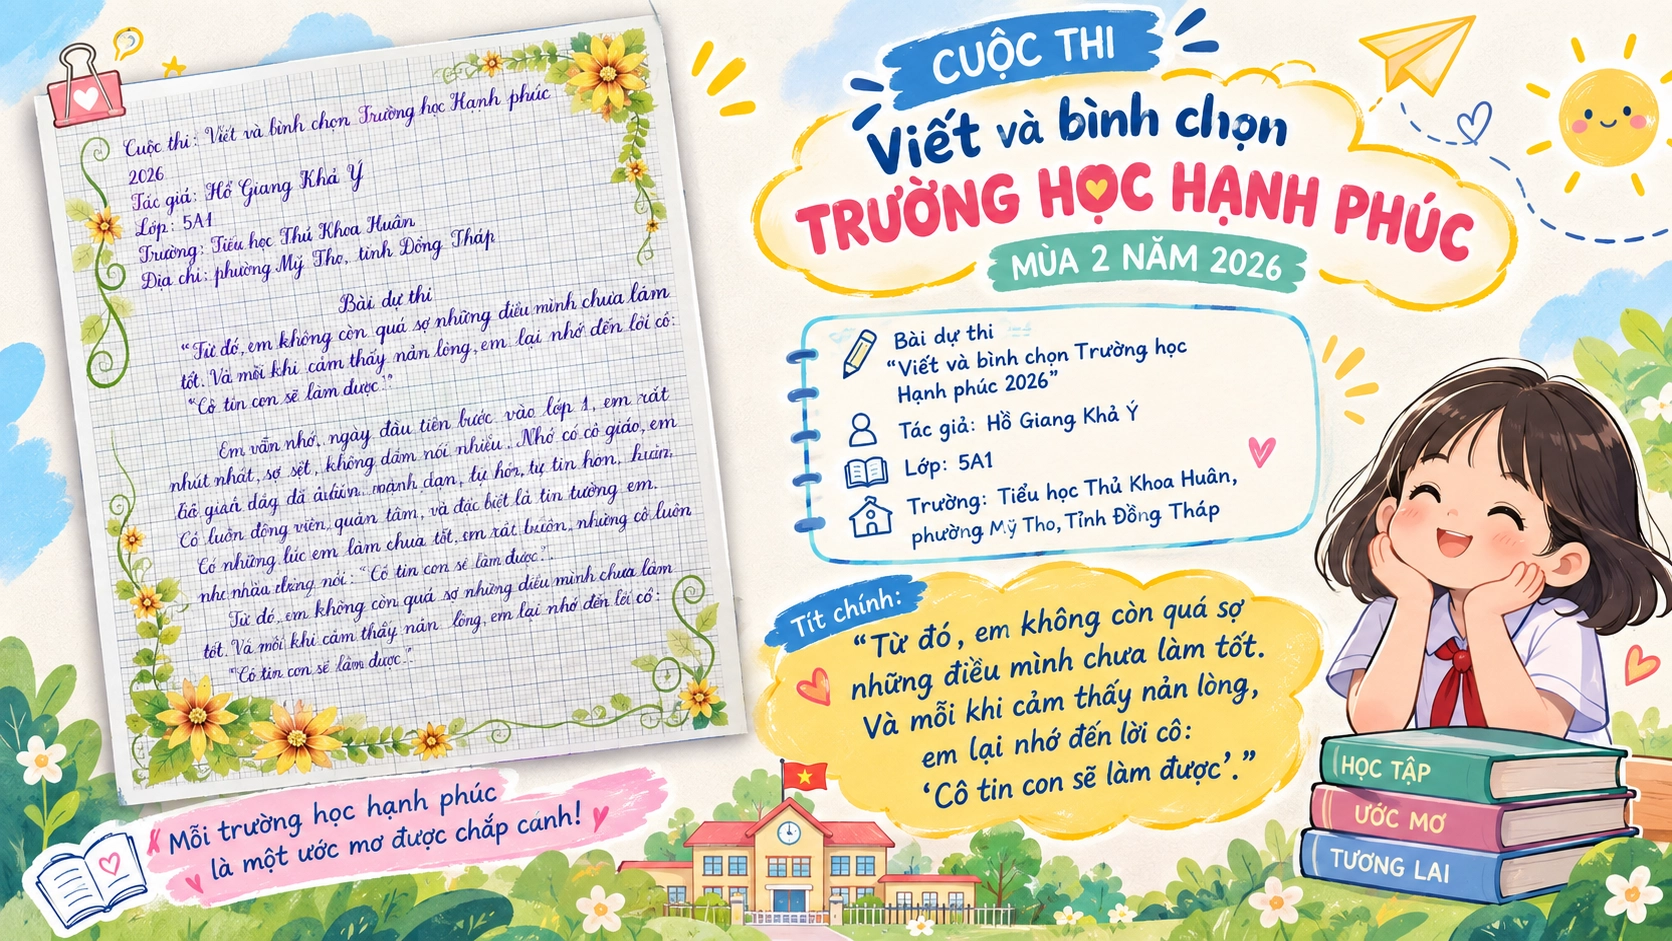 Cuộc thi: Viết và bình chọn Trường học Hạnh phúc
2026
Tác giả: Hồ Giang Khả Ý
Lớp: 5A1
Trường: Tiểu học Thủ Khoa Huân
Địa chỉ: phường Mỹ Tho, tỉnh Đồng Tháp
Bài dự thi
"Từ đó, em không còn quá sợ những điều mình chưa làm
tốt. Và mỗi khi cảm thấy nản lòng, em lại nhớ đến lời cô:
"Cô tin con sẽ làm được!"
Em vẫn nhớ, ngày đầu tiên bước vào lớp 1, em rất
nhút nhát, sợ sệt, không dám nói nhiều. Nhớ có cô giáo, em
đã mạnh dạn, tự hơn, tự tin hơn,
Cô luôn động viên, quan tâm, và đặc biệt là tin tưởng em.
Có những lúc em làm chưa tốt, em rất buồn, nhưng cô luôn
nhẹ nhàng nói: "Cô tin con sẽ làm được!".
Từ đó, em không còn quá sợ những điều mình chưa làm
tốt. Và mỗi khi cảm thấy nản lòng, em lại nhớ đến lời cô:
"Cô tin con sẽ làm được!".
Mỗi trường học hạnh phúc
là một ước mơ được chắp cánh!
CUỘC THI
Viết và bình chọn
TRƯỜNG HỌC HẠNH PHÚC
MÙA 2 NĂM 2026
Bài dự thi
"Viết và bình chọn Trường học
Hạnh phúc 2026"
Tác giả: Hồ Giang Khả Ý
Lớp: 5A1
Trường: Tiểu học Thủ Khoa Huân,
phường Mỹ Tho, Tỉnh Đồng Tháp
Tít chính:
"Từ đó, em không còn quá sợ
những điều mình chưa làm tốt.
Và mỗi khi cảm thấy nản lòng,
em lại nhớ đến lời cô:
'Cô tin con sẽ làm được'."
HỌC TẬP
ƯỚC MƠ
TƯƠNG LAI